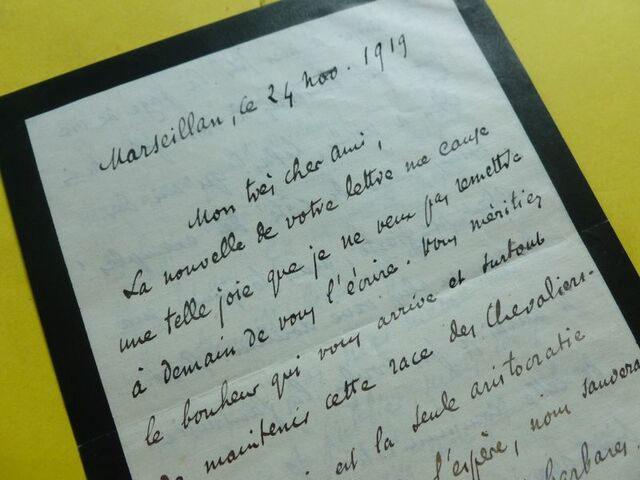 Marseillan, ce 24 nov. 1919
Mon très cher ami,
La nouvelle de votre lettre me cause
une telle joie que je ne veux pas remettre
à demain de vous l'écrire. Vous méritiez
le bonheur qui vous arrive et surtout
de maintenir cette race des Chevaliers-
est la seule aristocratie
l'espère, nous sauvera
barbares.